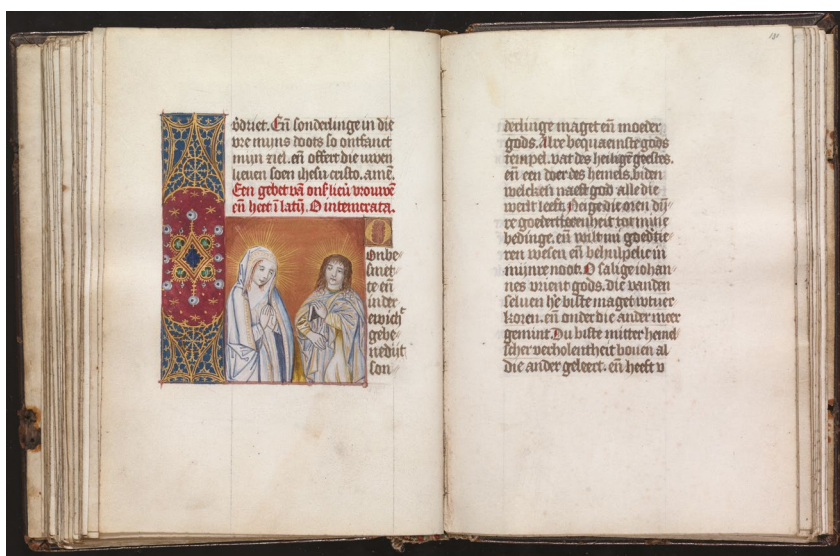 v̄driet. En̄ sonderlinge in die
vre mijns doots so ontfanct
mijn ziel. en̄ offert die uwen
lieuen soen ihesu cristo. amē.
Een gebet vā ons lieu̅ vrouwē
en̄ heet ī latij̄. O intemerata.
O
Onbe
smet
te en̄
in der
ewich
gebe
nedijt
son
derlinge maget en̄ moeder
gods. Alre bequaemste gods
tempel. vat des heiligē geestes.
en̄ een doer des hemels. biden
welckes naest god alle die
werlt leeft. Neige die oren
re goedertierenheit tot mijnre
bedinge. en̄ wilt mi goedtie
ren wesen en̄ behulpelic in
mijnre noot. O salige iohan
nes vrient gods. die vanden
seluen he biste maget wtuer
koren. en̄ onder die ander meer
gemint Du biste mitter hemel
scher verholentheit bouen al
die ander geleert. en̄ heeft v